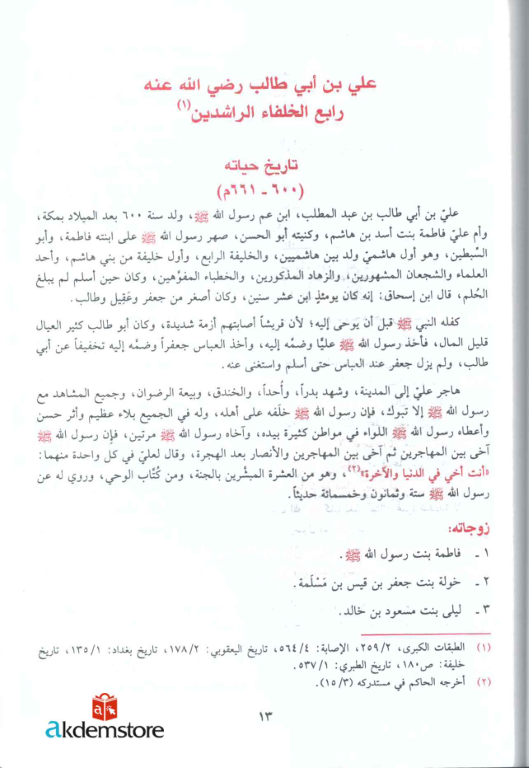 علي بن أبي طالب رضي الله عنه
رابع الخلفاء الراشدين(١)
تاريخ حياته
(٦٠٠ - ٦٦١م)
عليّ بن أبي طالب بن عبد المطلب، ابن عم رسول الله ﷺ، ولد سنة ٦٠٠ بعد الميلاد بمكة،
وأم عليّ فاطمة بنت أسد بن هاشم، وكنيته أبو الحسن، صهر رسول الله ﷺ على ابنته فاطمة، وأبو
السِّبطين، وهو أول هاشميّ ولد بين هاشميين، والخليفة الرابع، وأول خليفة من بني هاشم، وأحد
العلماء والشجعان المشهورين، والزهاد المذكورين، والخطباء المفوّهين، وكان حين أسلم لم يبلغ
الحُلم، قال ابن إسحاق: إنه كان يومئذٍ ابن عشر سنين، وكان أصغر من جعفر وعَقِيل وطالب.
كفله النبي ﷺ قبل أن يوحى إليه؛ لأن قريشاً أصابتهم أزمة شديدة، وكان أبو طالب كثير العيال
قليل المال، فأخذ رسول الله ﷺ عليًّا وضمَّه إليه، وأخذ العباس جعفراً وضمَّه إليه تخفيفاً عن أبي
طالب، ولم يزل جعفر عند العباس حتى أسلم واستغنى عنه.
هاجر عليّ إلى المدينة، وشهد بدراً، وأُحداً، والخندق، وبيعة الرضوان، وجميع المشاهد مع
رسول الله ﷺ إلا تبوك، فإن رسول الله ﷺ خلّفه على أهله، وله في الجميع بلاء عظيم وأثر حسن
وأعطاه رسول الله ﷺ اللواء في مواطن كثيرة بيده، وآخاه رسول الله ﷺ مرتين، فإن رسول الله ﷺ
آخى بين المهاجرين ثم آخى بين المهاجرين والأنصار بعد الهجرة، وقال لعليّ في كل واحدة منهما:
«أنت أخي في الدنيا والآخرة»(٢)، وهو من العشرة المبشّرين بالجنة، ومن كُتّاب الوحي، وروي له عن
رسول الله ﷺ ستة وثمانون وخمسمائة حديثاً.
زوجاته:
١ ـ فاطمة بنت رسول الله ﷺ.
٢ ـ خولة بنت جعفر بن قيس بن مَسْلَمة.
٣ ـ ليلى بنت مسعود بن خالد.
(١) الطبقات الكبرى، ٢٥٩/٢، الإصابة: ٥٦٤/٤، تاريخ اليعقوبي: ١٧٨/٢، تاريخ بغداد: ١٣٥/١، تاريخ
خليفة: ص١٨٠، تاريخ الطبري: ٥٣٧/١.
(٢) أخرجه الحاكم في مستدركه (١٥/٣).
١٣
a
akdemstore